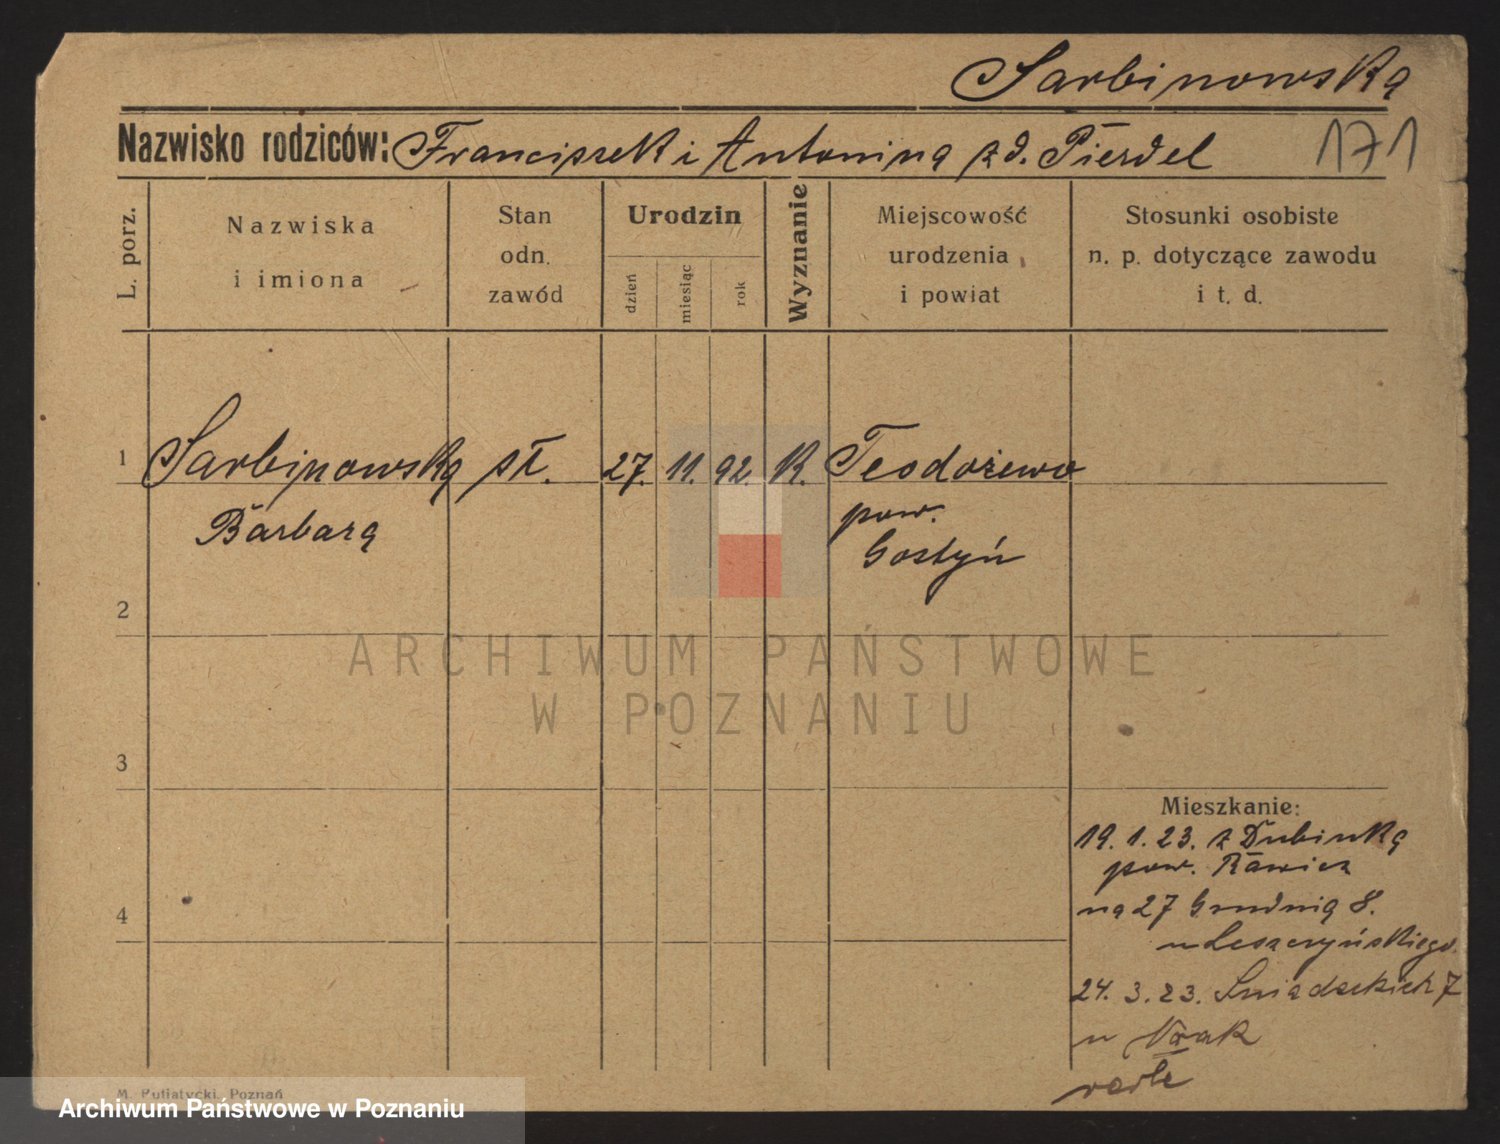 Sarbinowska
Nazwisko rodziców: Franciszek i Antonina z d. Pierdel
171
L. porz.
Nazwiska
i imiona
Stan
odn.
zawód
Urodzin
dzień
miesiąc
rok
Wyznanie
Miejscowość
urodzenia
i powiat
Stosunki osobiste
n. p. dotyczące zawodu
i t. d.
1 Sarbinowska st. 27. 11. 92. K. Teodożewo
Barbara
pow.
Gostyń
2
3
4
Mieszkanie:
19. 1. 23. z Dubinka
pow. Rawicz
na 27 Grudnia 8.
u Leszczyńskiego.
24. 3. 23. Śniadeckich 7
u
ARCHIWUM PAŃSTWOWE
W POZNANIU
M. Putiatycki, Poznań
Archiwum Państwowe w Poznaniu